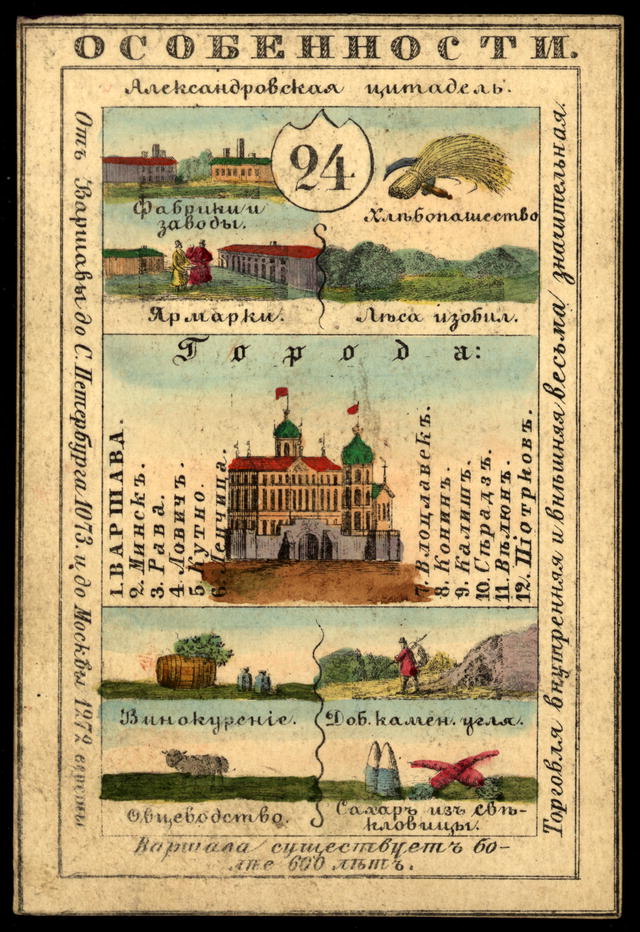 ОСОБЕННОСТИ.
Александровская цитадель.
Отъ Варшавы до С. Петербурга 1073. и до Москвы 1272 версты
24
Фабрики и
заводы.
Хлѣбопашество
Ярмарки.
Лѣса изобил.
Города:
1. ВАРШАВА.
2. Минскъ.
3. Рава.
4. Ловичъ.
5. Кутно.
6. Ленчица.
7. Влоцлавекъ.
8. Конинъ.
9. Калишъ.
10. Сѣрадзъ.
11. Вѣлюнъ.
12. Піотрковъ.
Винокуреніе.
Доб. камен. угля.
Овцеводство.
Сахаръ изъ свѣ-
кловицы.
Торговля внутренняя и внѣшняя весьма значительная.
Варшава существуетъ бо-
лѣе 600 лѣтъ.